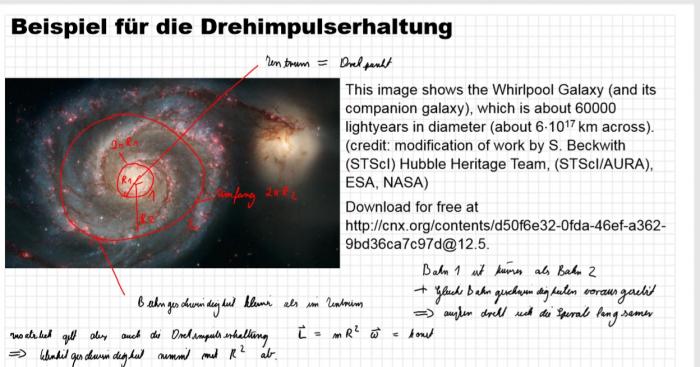 Beispiel für die Drehimpulserhaltung
Zentrum = Drehpunkt
This image shows the Whirlpool Galaxy (and its
companion galaxy), which is about 60000
lightyears in diameter (about 6·10¹⁷ km across).
(credit: modification of work by S. Beckwith
(STScI) Hubble Heritage Team, (STScI/AURA),
ESA, NASA)
Download for free at
http://cnx.org/contents/d50f6e32-0fda-46ef-a362-
9bd36ca7c97d@12.5.
R₁
R2
Umfang 2πR₂
Bahn 1 ist kürzer als Bahn 2
+ gleiche Bahngeschwindigkeiten vorausgesetzt
⇒ außen dreht sich die Spirale langsamer
Bahngeschwindigkeit kleiner als im Zentrum
natürlich gilt aber auch die Drehimpulserhaltung L⃗ = mR² ω⃗ = konst
⇒ Winkelgeschwindigkeit nimmt mit R² ab.